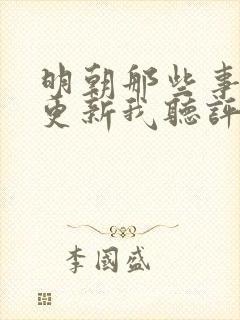 明朝那些事
更新我聽評
李國盛